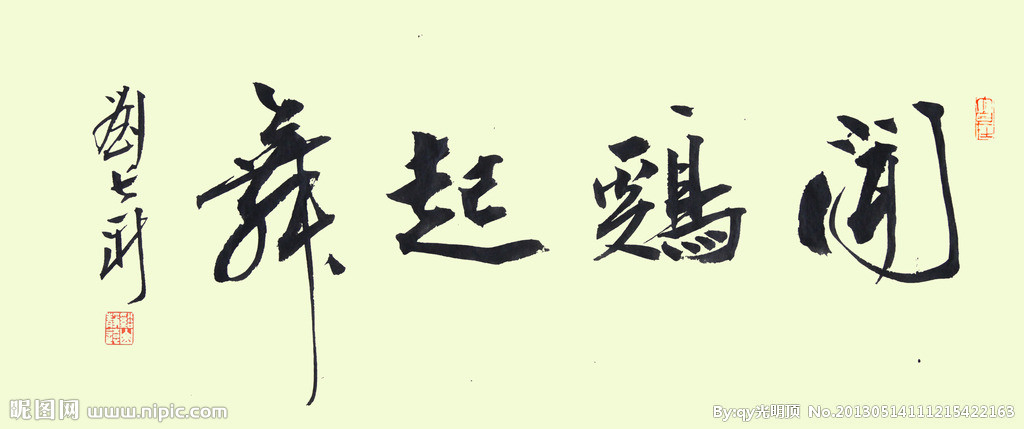 聞鷄起舞
昵图网 www.nipic.com
By:qy光明顶 No.20130514111215422163